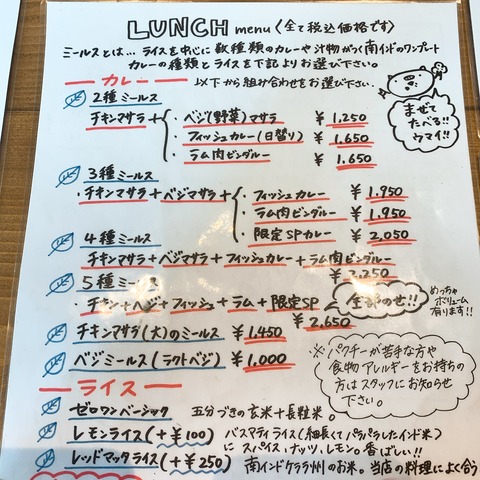 LUNCH menu〈全て税込価格です〉
ミールスとは… ライスを中心に 数種類のカレーや汁物がつく南インドのワンプレート
カレーの種類とライスを下記よりお選び下さい。
カレー 以下から組み合わせをお選び下さい。
まぜて
たべる!!
ウマイ!!
2種ミールス
チキンマサラ + ・ベジ(野菜)マサラ ¥1,250
・フィッシュカレー(日替り) ¥1,650
・ラム肉ビンダルー ¥1,650
3種ミールス
・チキンマサラ+ベジマサラ+ ・フィッシュカレー ¥1,950
・ラム肉ビンダルー ¥1,950
・限定SPカレー ¥2,050
4種ミールス
チキンマサラ+ベジマサラ+フィッシュカレー+ラム肉ビンダルー
¥2,250
5種ミールス
・チキン+ベジ+フィッシュ+ラム+限定SP 全部のせ!!
¥2,650
めっちゃ
ボリューム
有ります!!
チキンマサラ(大)のミールス ¥1,450
ベジミールス(ラクトベジ) ¥1,000
※パクチーが苦手な方や
食物アレルギーをお持ちの
方はスタッフにお知らせ
下さい。
ライス
ゼロワンベーシック 五分づきの玄米+長粒米。
レモンライス(+¥100) バスマティライス(細長くてパラパラしたインド米)
にスパイス、ナッツ、レモン。香ばしい!!
レッドマッタライス(+¥250) 南インドケララ州のお米。当店の料理によく合う